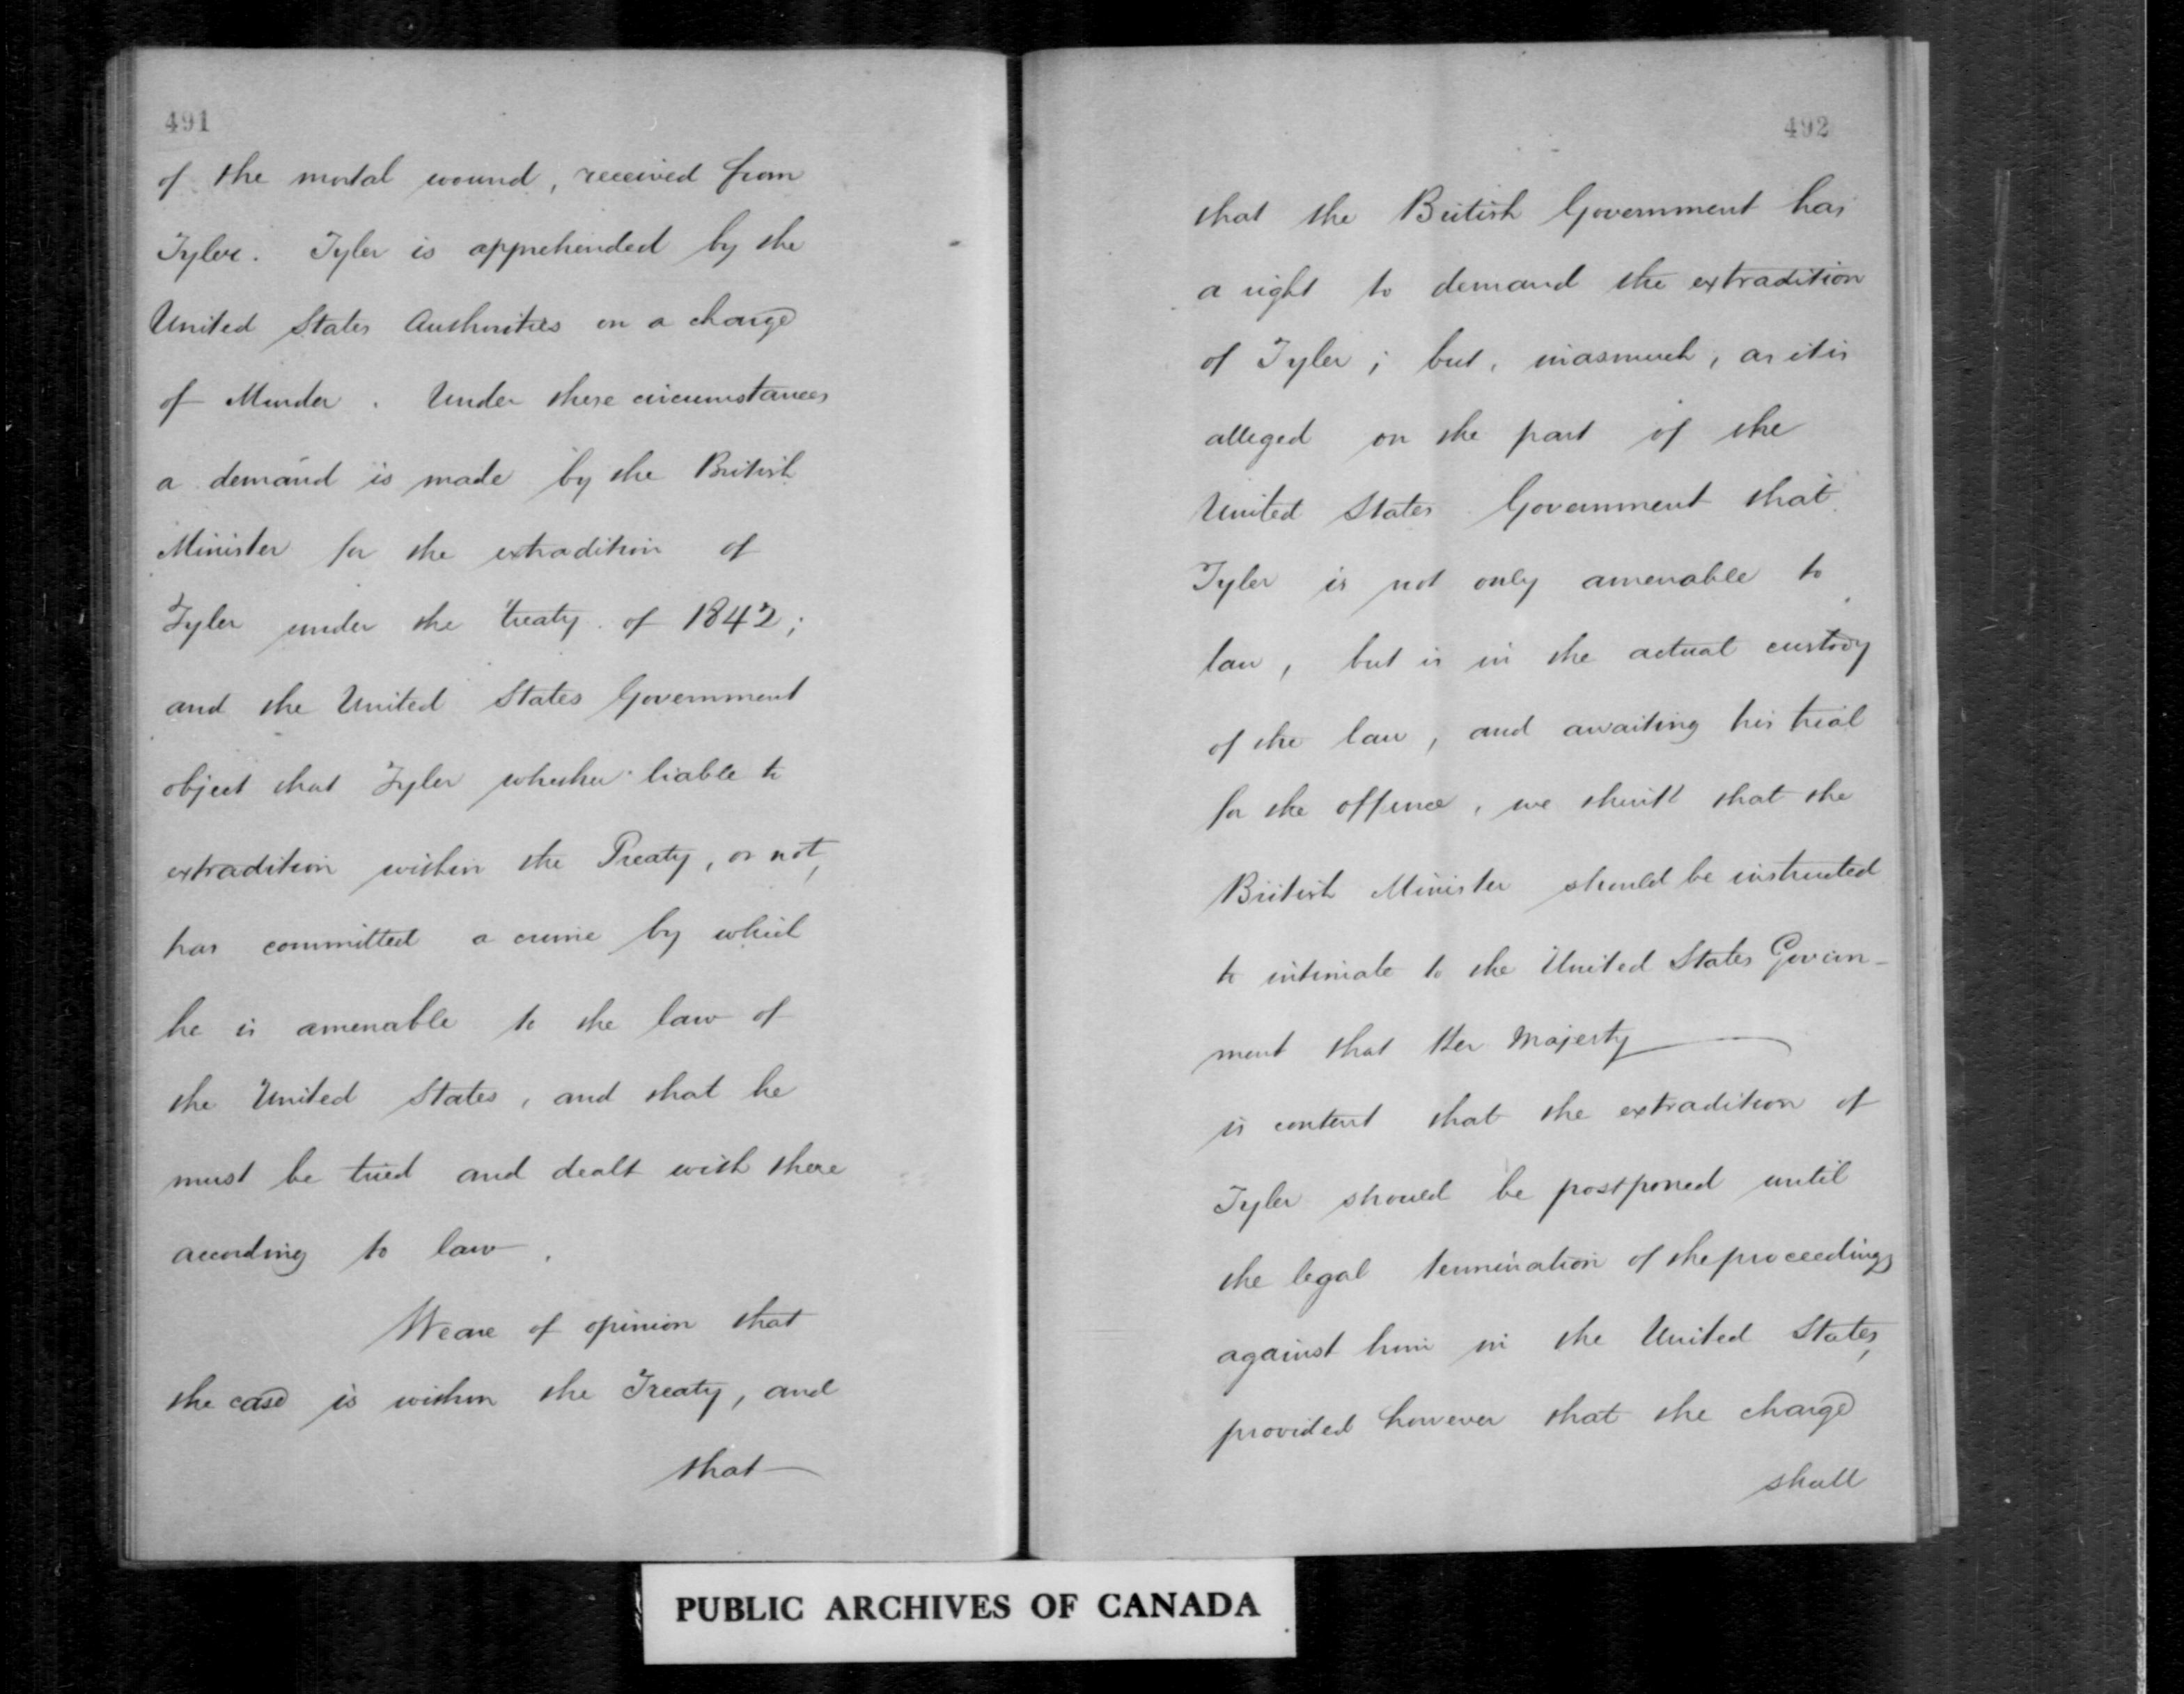 491
of the mortal wound, received from
Tyler. Tyler is apprehended by the
United States Authorities on a charge
of Murder. Under these circumstances
a demand is made by the British
Minister for the extradition of
Tyler under the treaty of 1842;
and the United States Government
object that Tyler whether liable to
extradition within the Treaty, or not,
has committed a crime by which
he is amenable to the law of
the United States, and that he
must be tried and dealt with there
according to law.
We are of opinion that
the case is within the Treaty, and
that
492
that the British Government has
a right to demand the extradition
of Tyler; but, inasmuch, as it is
alleged on the part of the
United States Government that
Tyler is not only amenable to
law, but is in the actual custody
of the law, and awaiting his trial
for the offence, we think that the
British Minister should be instructed
to intimate to the United States Govern-
ment that Her Majesty
is content that the extradition of
Tyler should be postponed until
the legal termination of the proceedings
against him in the United States,
provided however that the charge
shall
PUBLIC ARCHIVES OF CANADA